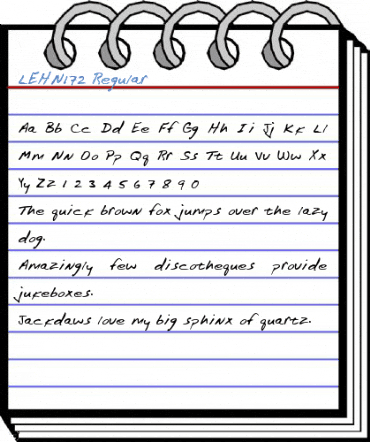 LEHN172 Regular
Aa Bb Cc Dd Ee Ff Gg Hh Ii Jj Kk Ll
Mm Nn Oo Pp Qq Rr Ss Tt Uu Vv Ww Xx
Yy Zz 1 2 3 4 5 6 7 8 9 0
The quick brown fox jumps over the lazy
dog.
Amazingly few discotheques provide
jukeboxes.
Jackdaws love my big sphinx of quartz.